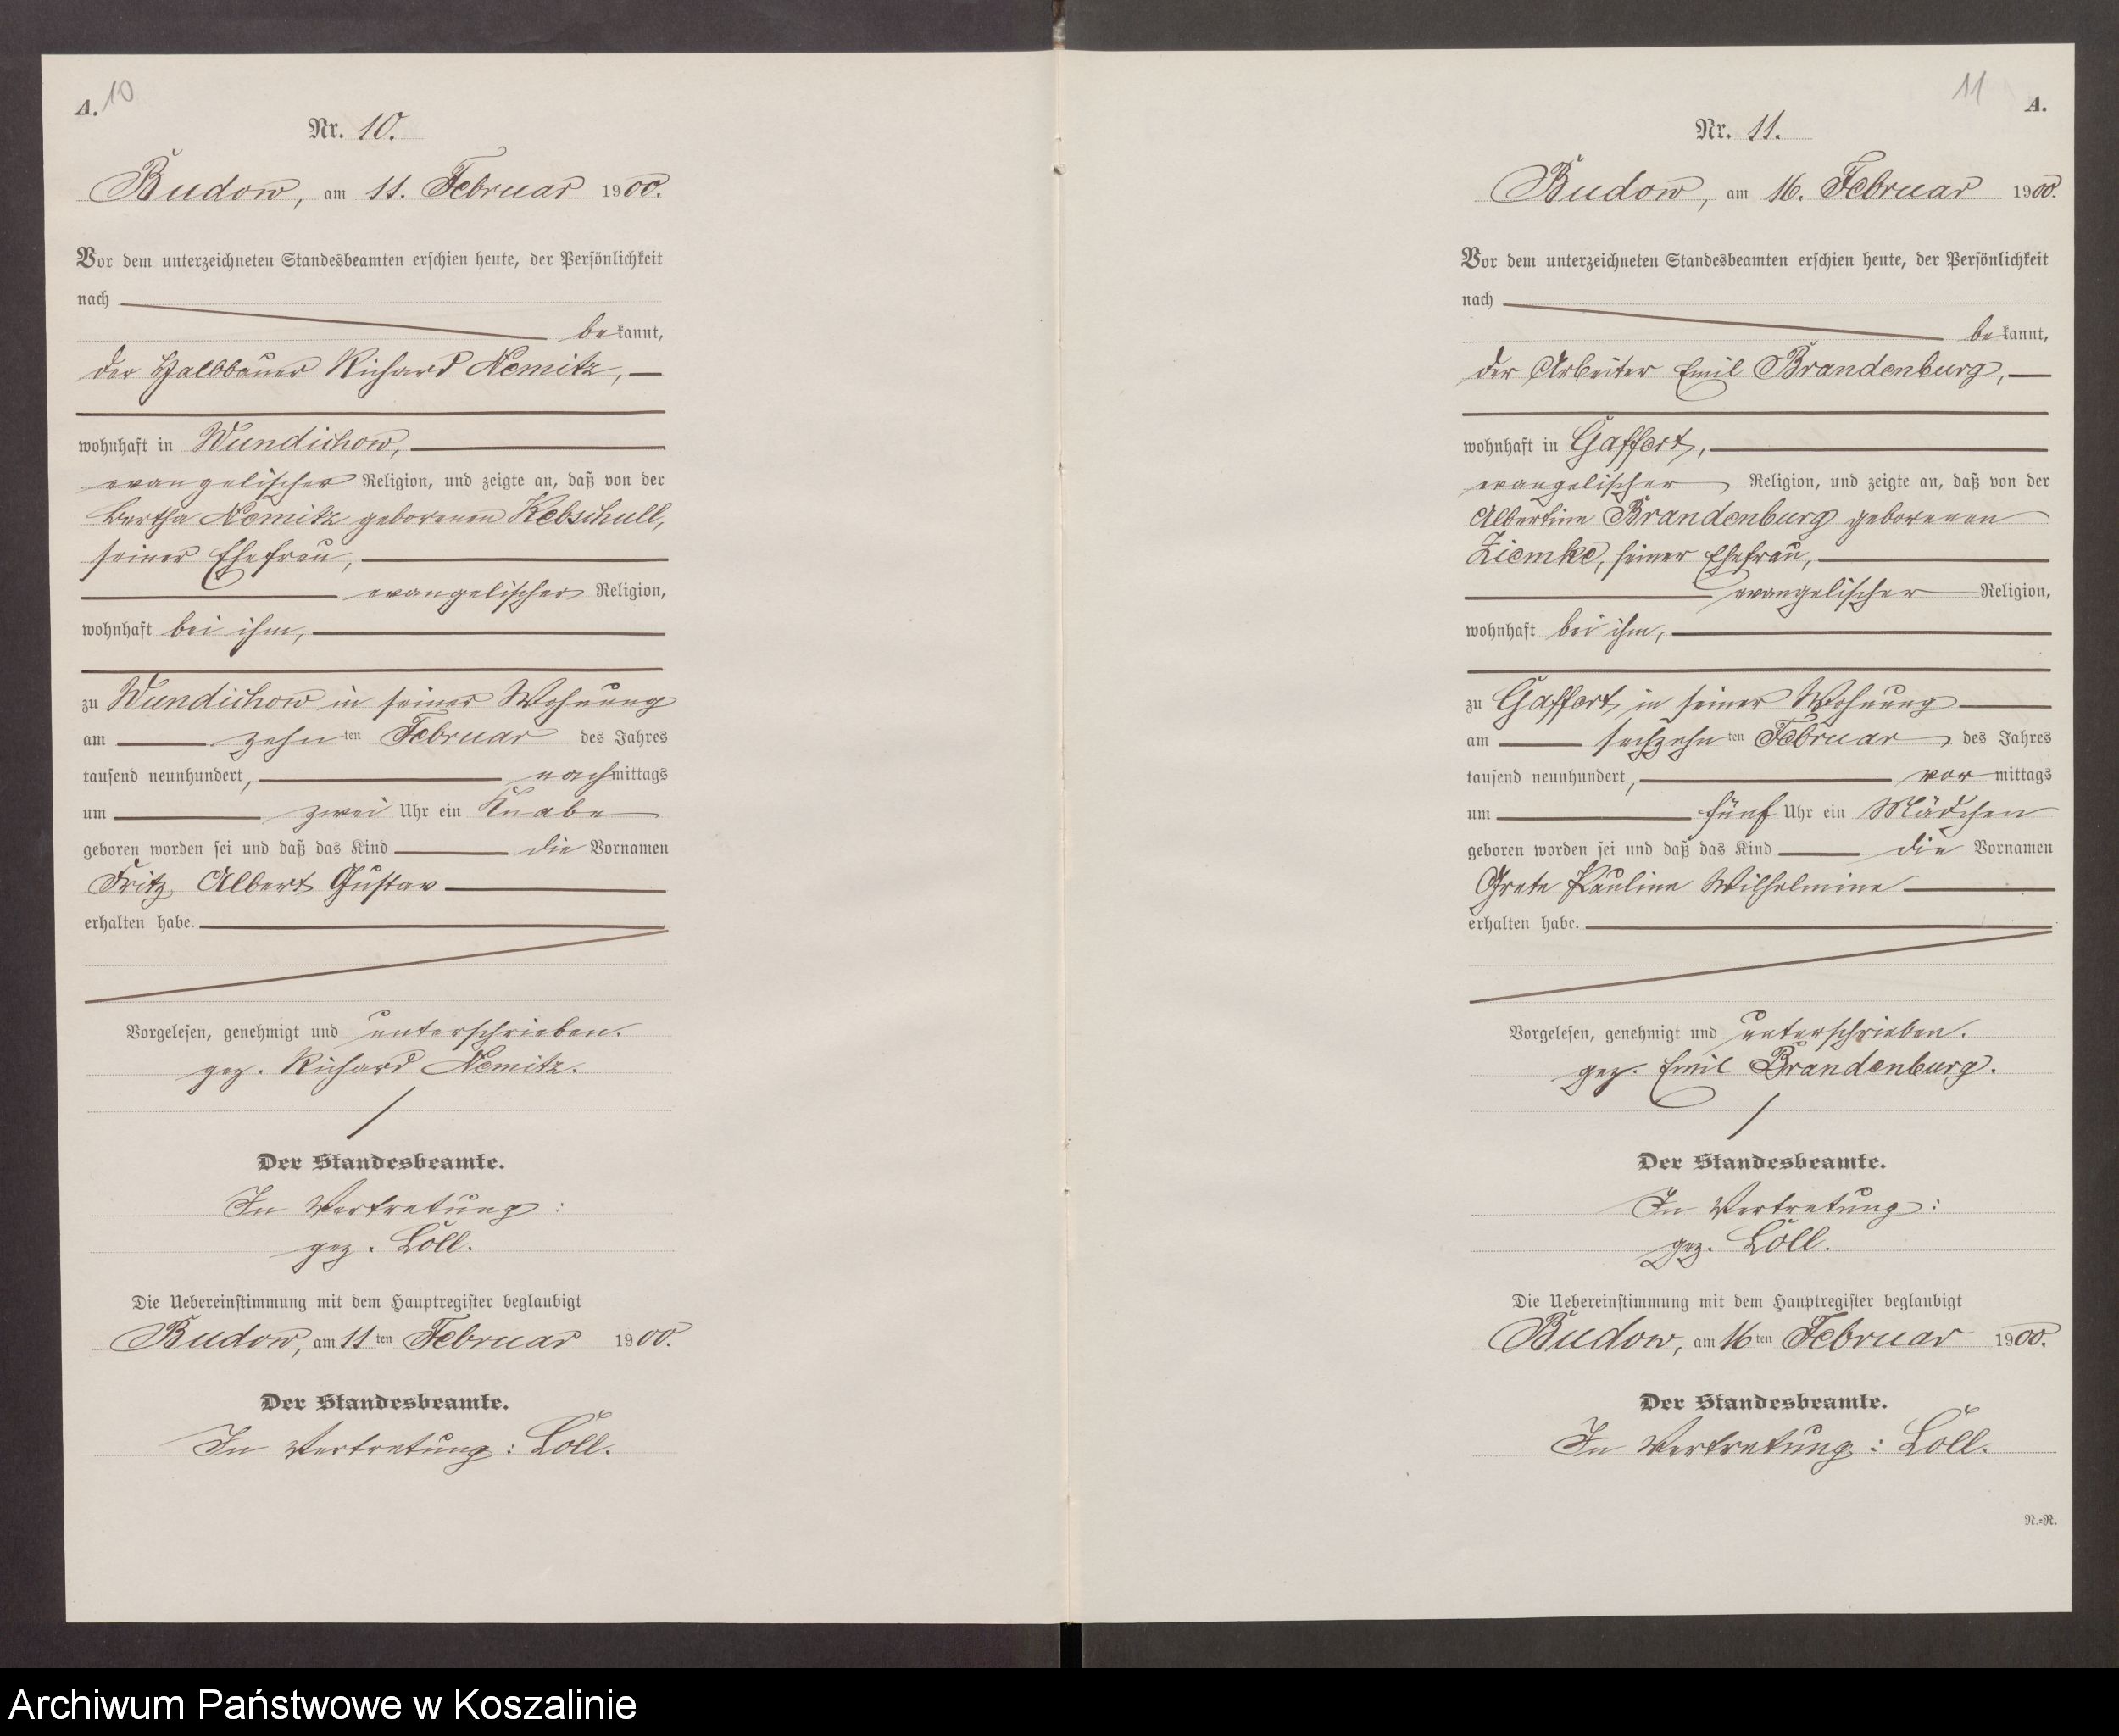 A. 10
Nr. 10.
Budow, am 11. Februar 1900.
Vor dem unterzeichneten Standesbeamten erschien heute, der Persönlichkeit
nach
bekannt,
der Halbbauer Richard Nemitz,
wohnhaft in Wundichow,
evangelischer Religion, und zeigte an, daß von der
Bertha Nemitz geborenen Kebschull,
seiner Ehefrau,
evangelischer Religion,
wohnhaft bei ihm,
zu Wundichow in seiner Wohnung
am zehnten Februar des Jahres
tausend neunhundert, nachmittags
um zwei Uhr ein Knabe
geboren worden sei und daß das Kind die Vornamen
Fritz Albert Gustav
erhalten habe.
Vorgelesen, genehmigt und unterschrieben.
gez. Richard Nemitz.
Der Standesbeamte.
In Vertretung:
gez. Löll.
Die Uebereinstimmung mit dem Hauptregister beglaubigt
Budow, am 11ten Februar 1900.
Der Standesbeamte.
In Vertretung: Löll.
11 A.
Nr. 11.
Budow, am 16. Februar 1900.
Vor dem unterzeichneten Standesbeamten erschien heute, der Persönlichkeit
nach
bekannt,
der Arbeiter Emil Brandenburg,
wohnhaft in Gaffert,
evangelischer Religion, und zeigte an, daß von der
Albertine Brandenburg geborenen
Ziemke, seiner Ehefrau,
evangelischer Religion,
wohnhaft bei ihm,
zu Gaffert in seiner Wohnung
am sechzehnten Februar des Jahres
tausend neunhundert, vormittags
um fünf Uhr ein Mädchen
geboren worden sei und daß das Kind die Vornamen
Grete Pauline Wilhelmine
erhalten habe.
Vorgelesen, genehmigt und unterschrieben.
gez. Emil Brandenburg.
Der Standesbeamte.
In Vertretung:
gez. Löll.
Die Uebereinstimmung mit dem Hauptregister beglaubigt
Budow, am 16ten Februar 1900.
Der Standesbeamte.
In Vertretung: Löll.
N.=R.
Archiwum Państwowe w Koszalinie